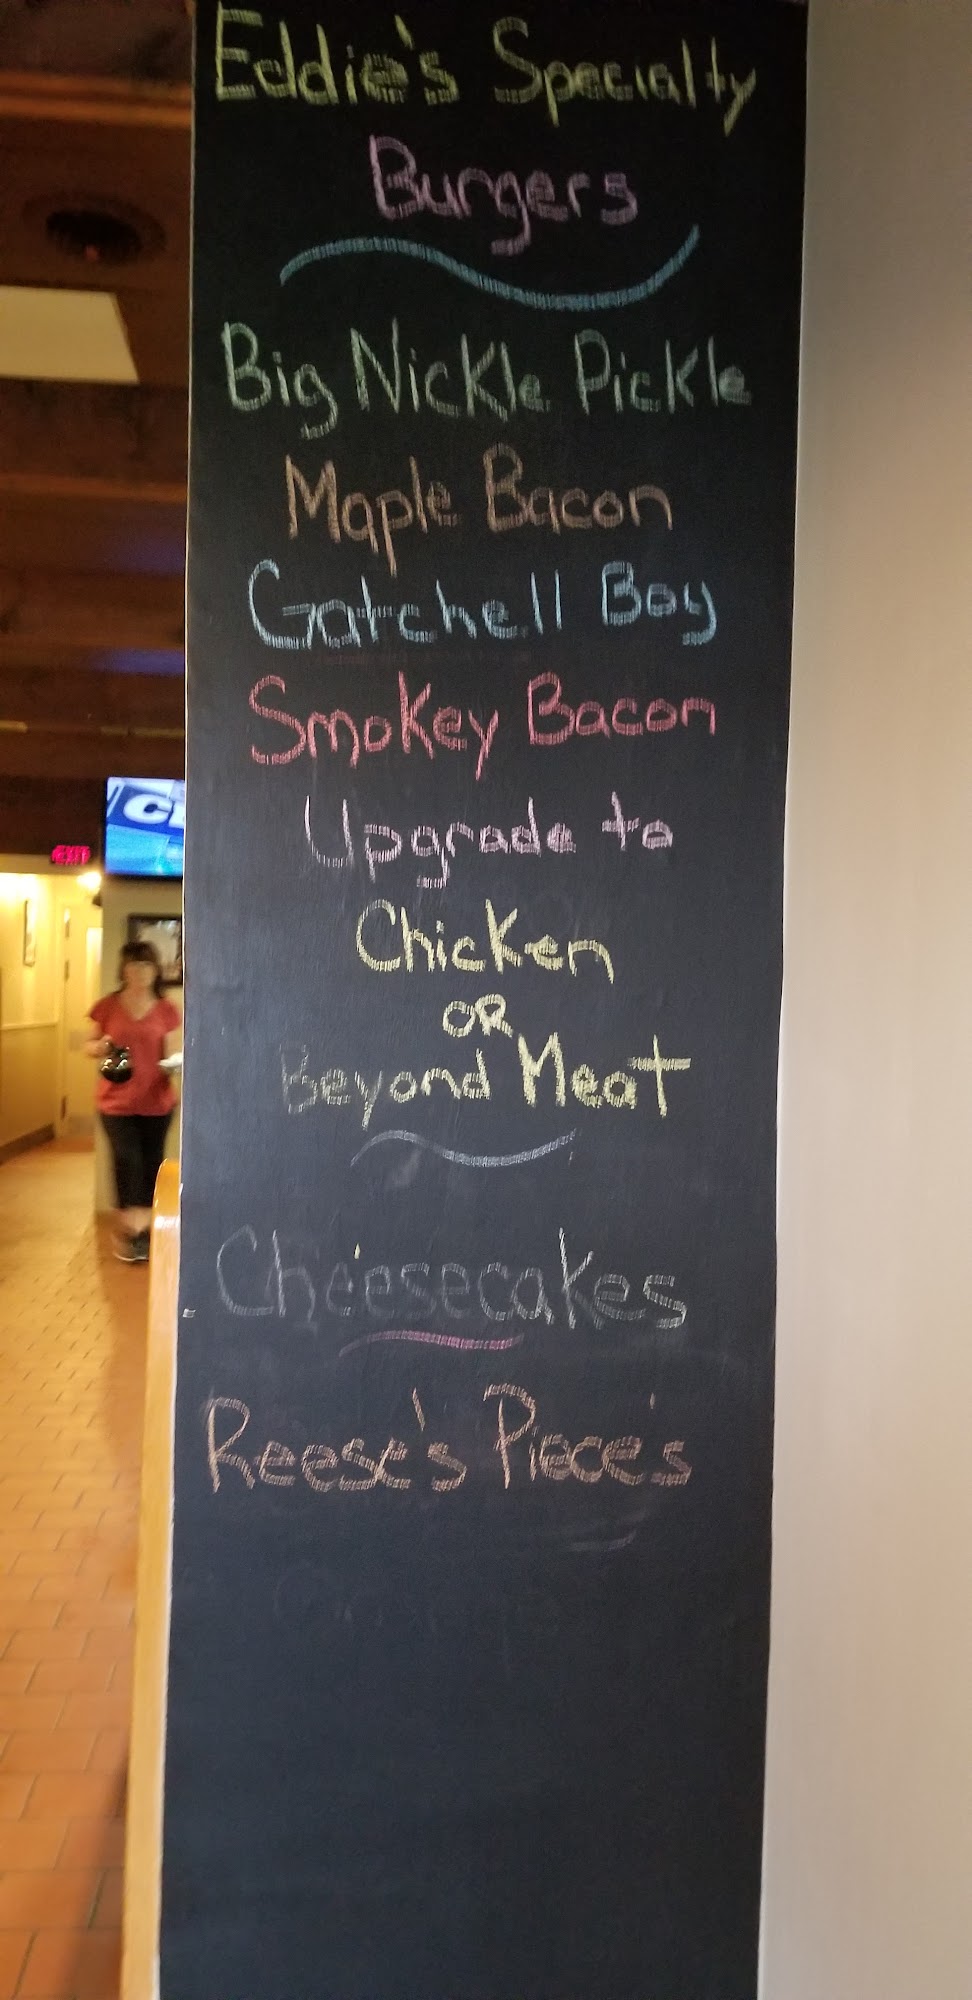 Eddie's Specialty
Burgers
Big Nickle Pickle
Maple Bacon
Gatchell Boy
Smokey Bacon
Upgrade to
Chicken
OR
Beyond Meat
Cheesecakes
Reese's Piece's
EXIT